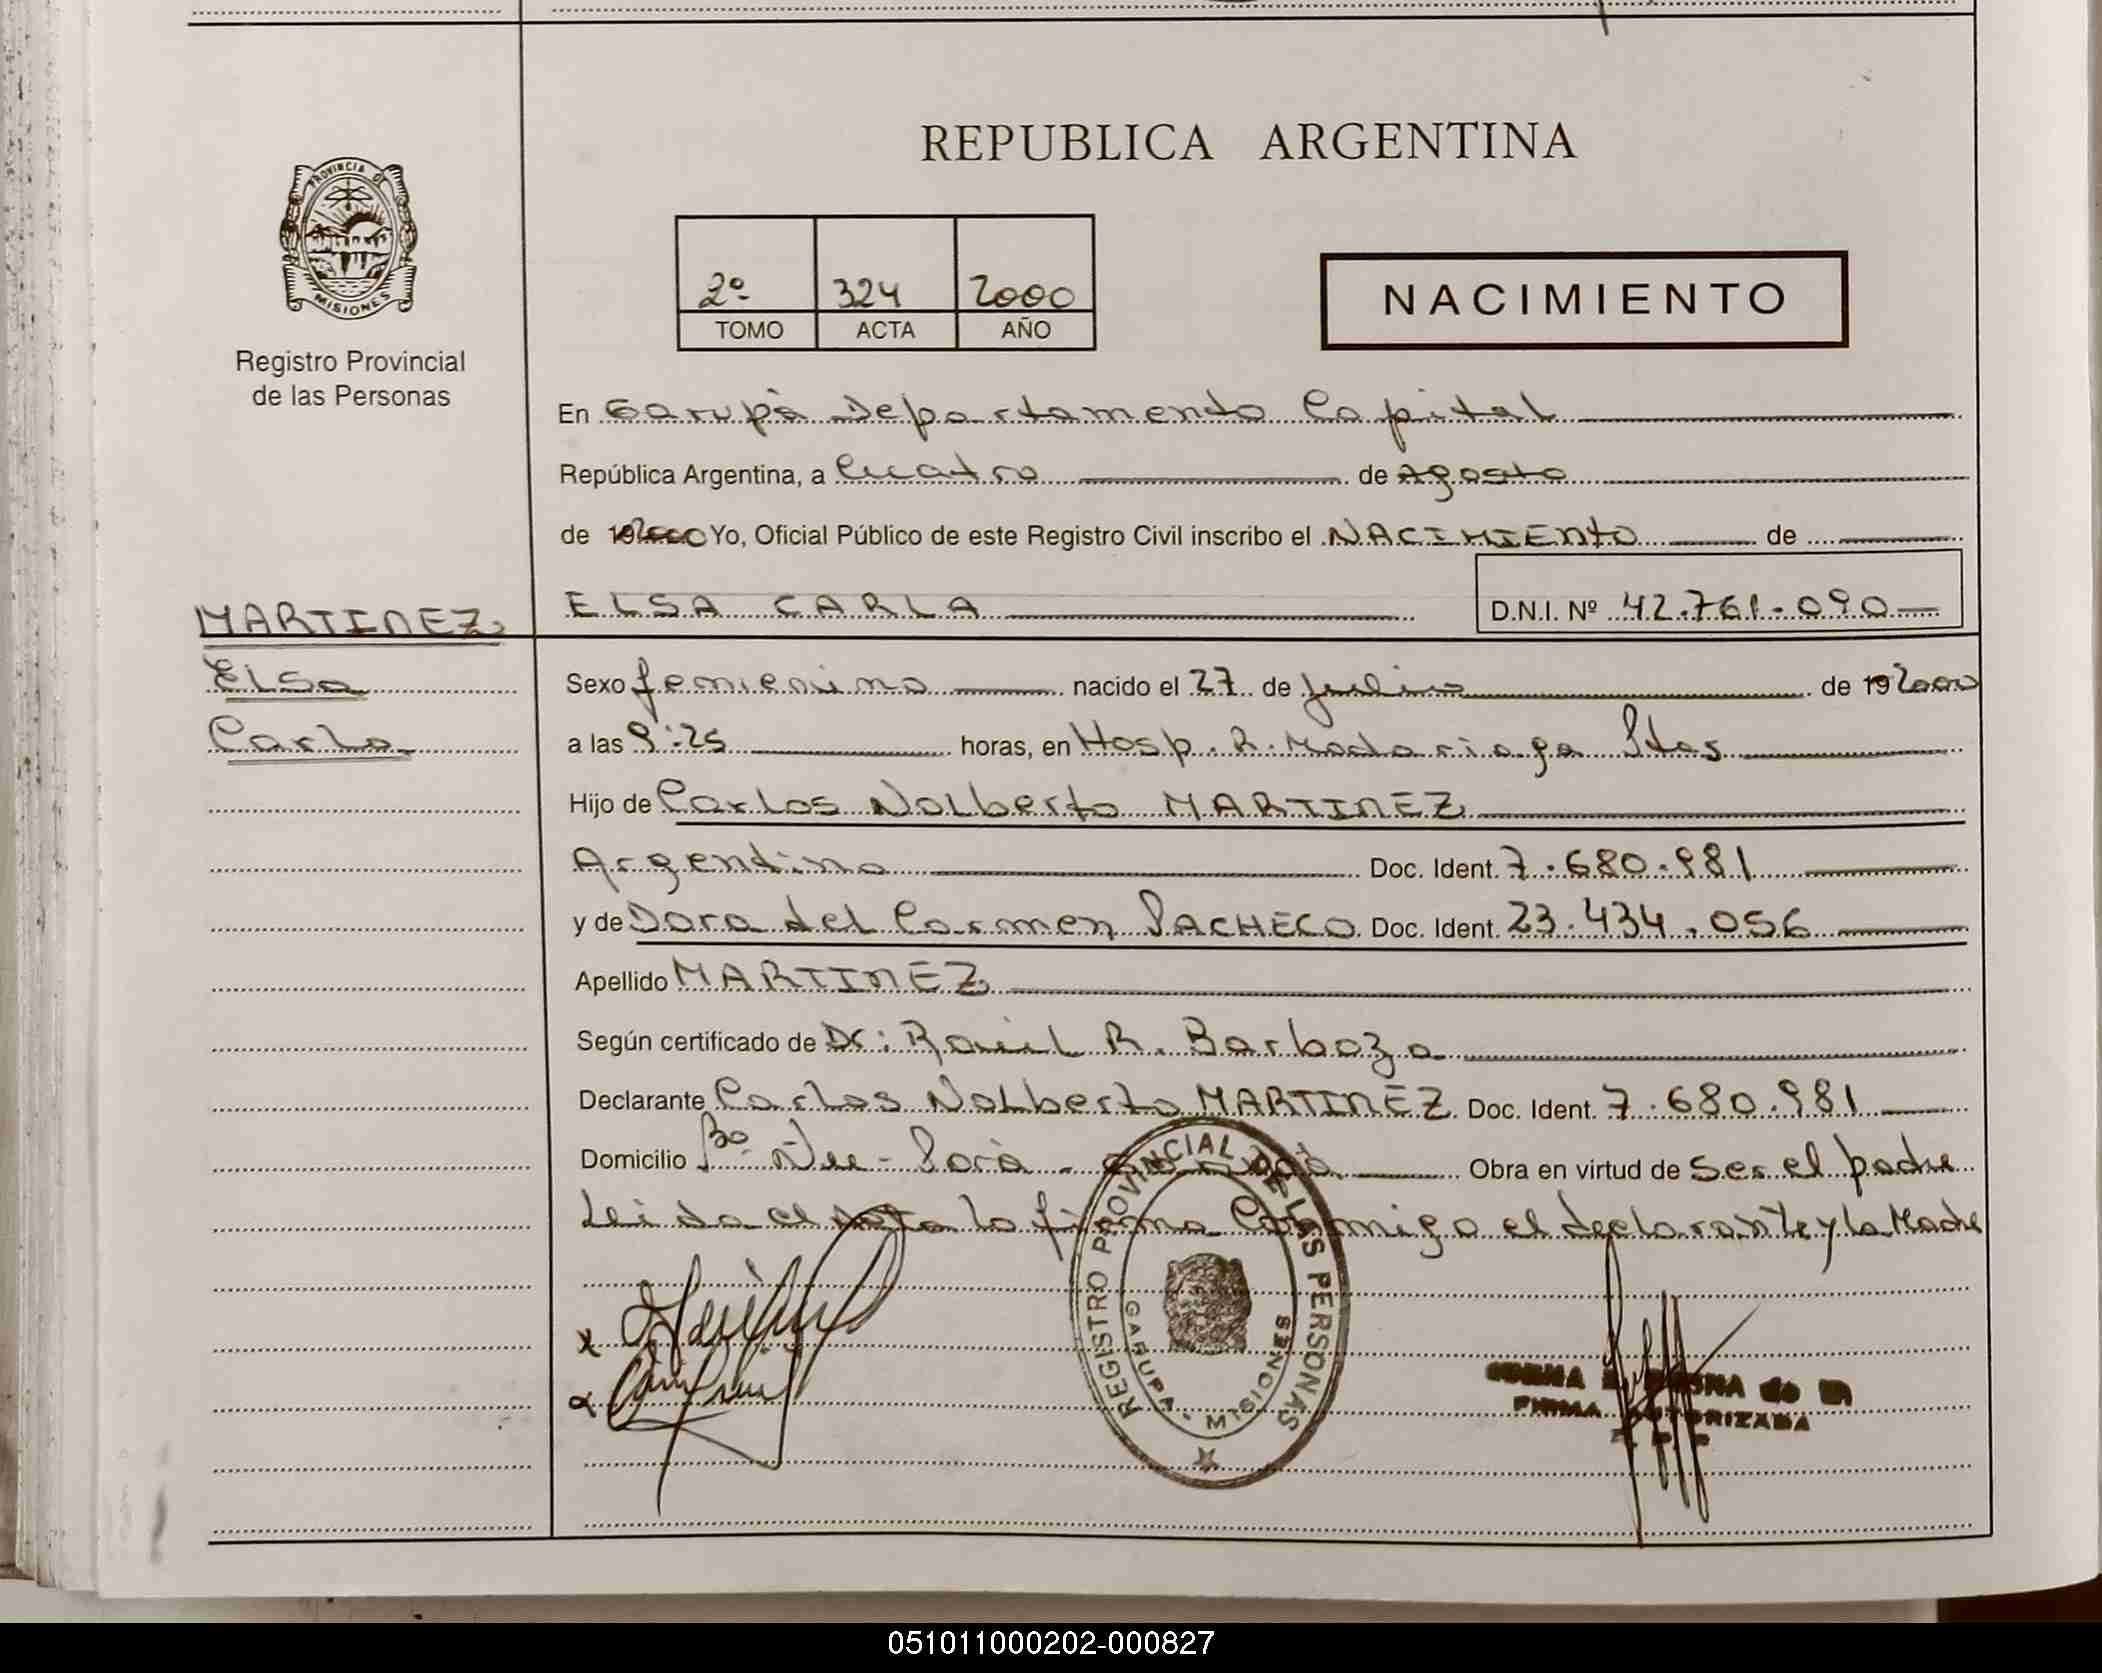 REPUBLICA ARGENTINA
PROVINCIA DE
MISIONES
Registro Provincial
de las Personas
2º 324 2000
TOMO ACTA AÑO
NACIMIENTO
En Garupá Departamento Capital
República Argentina, a Cuatro de Agosto
de 192000 Yo, Oficial Público de este Registro Civil inscribo el NACIMIENTO de
ELSA CARLA D.N.I. Nº 42.761.090
MARTINEZ
Elsa
Carla
Sexo femenino nacido el 27 de Julio de 192000
a las 9:25 horas, en Hosp. R. Madariaga Pdas
Hijo de Carlos Nolberto MARTINEZ
Argentino Doc. Ident. 7.680.981
y de Dora del Carmen PACHECO Doc. Ident. 23.434.056
Apellido MARTINEZ
Según certificado de Dr: Raúl R. Barboza
Declarante Carlos Nolberto MARTINEZ Doc. Ident. 7.680.981
Domicilio Bº Ñu-Porá - Garupá Obra en virtud de ser el padre
Leida el acta la firma Conmigo el declarante y la Madre
REGISTRO PROVINCIAL DE LAS PERSONAS
GARUPA - MISIONES
FIRMA AUTORIZADA
051011000202-000827